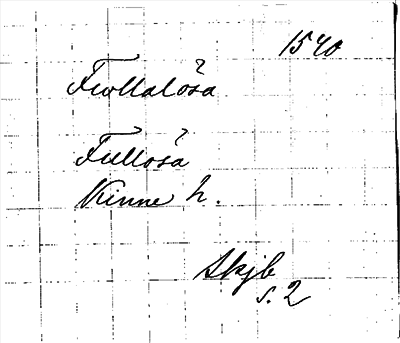 1540
Fwllalösa
Fullösa
Kinne h.
Skjb
s. 2